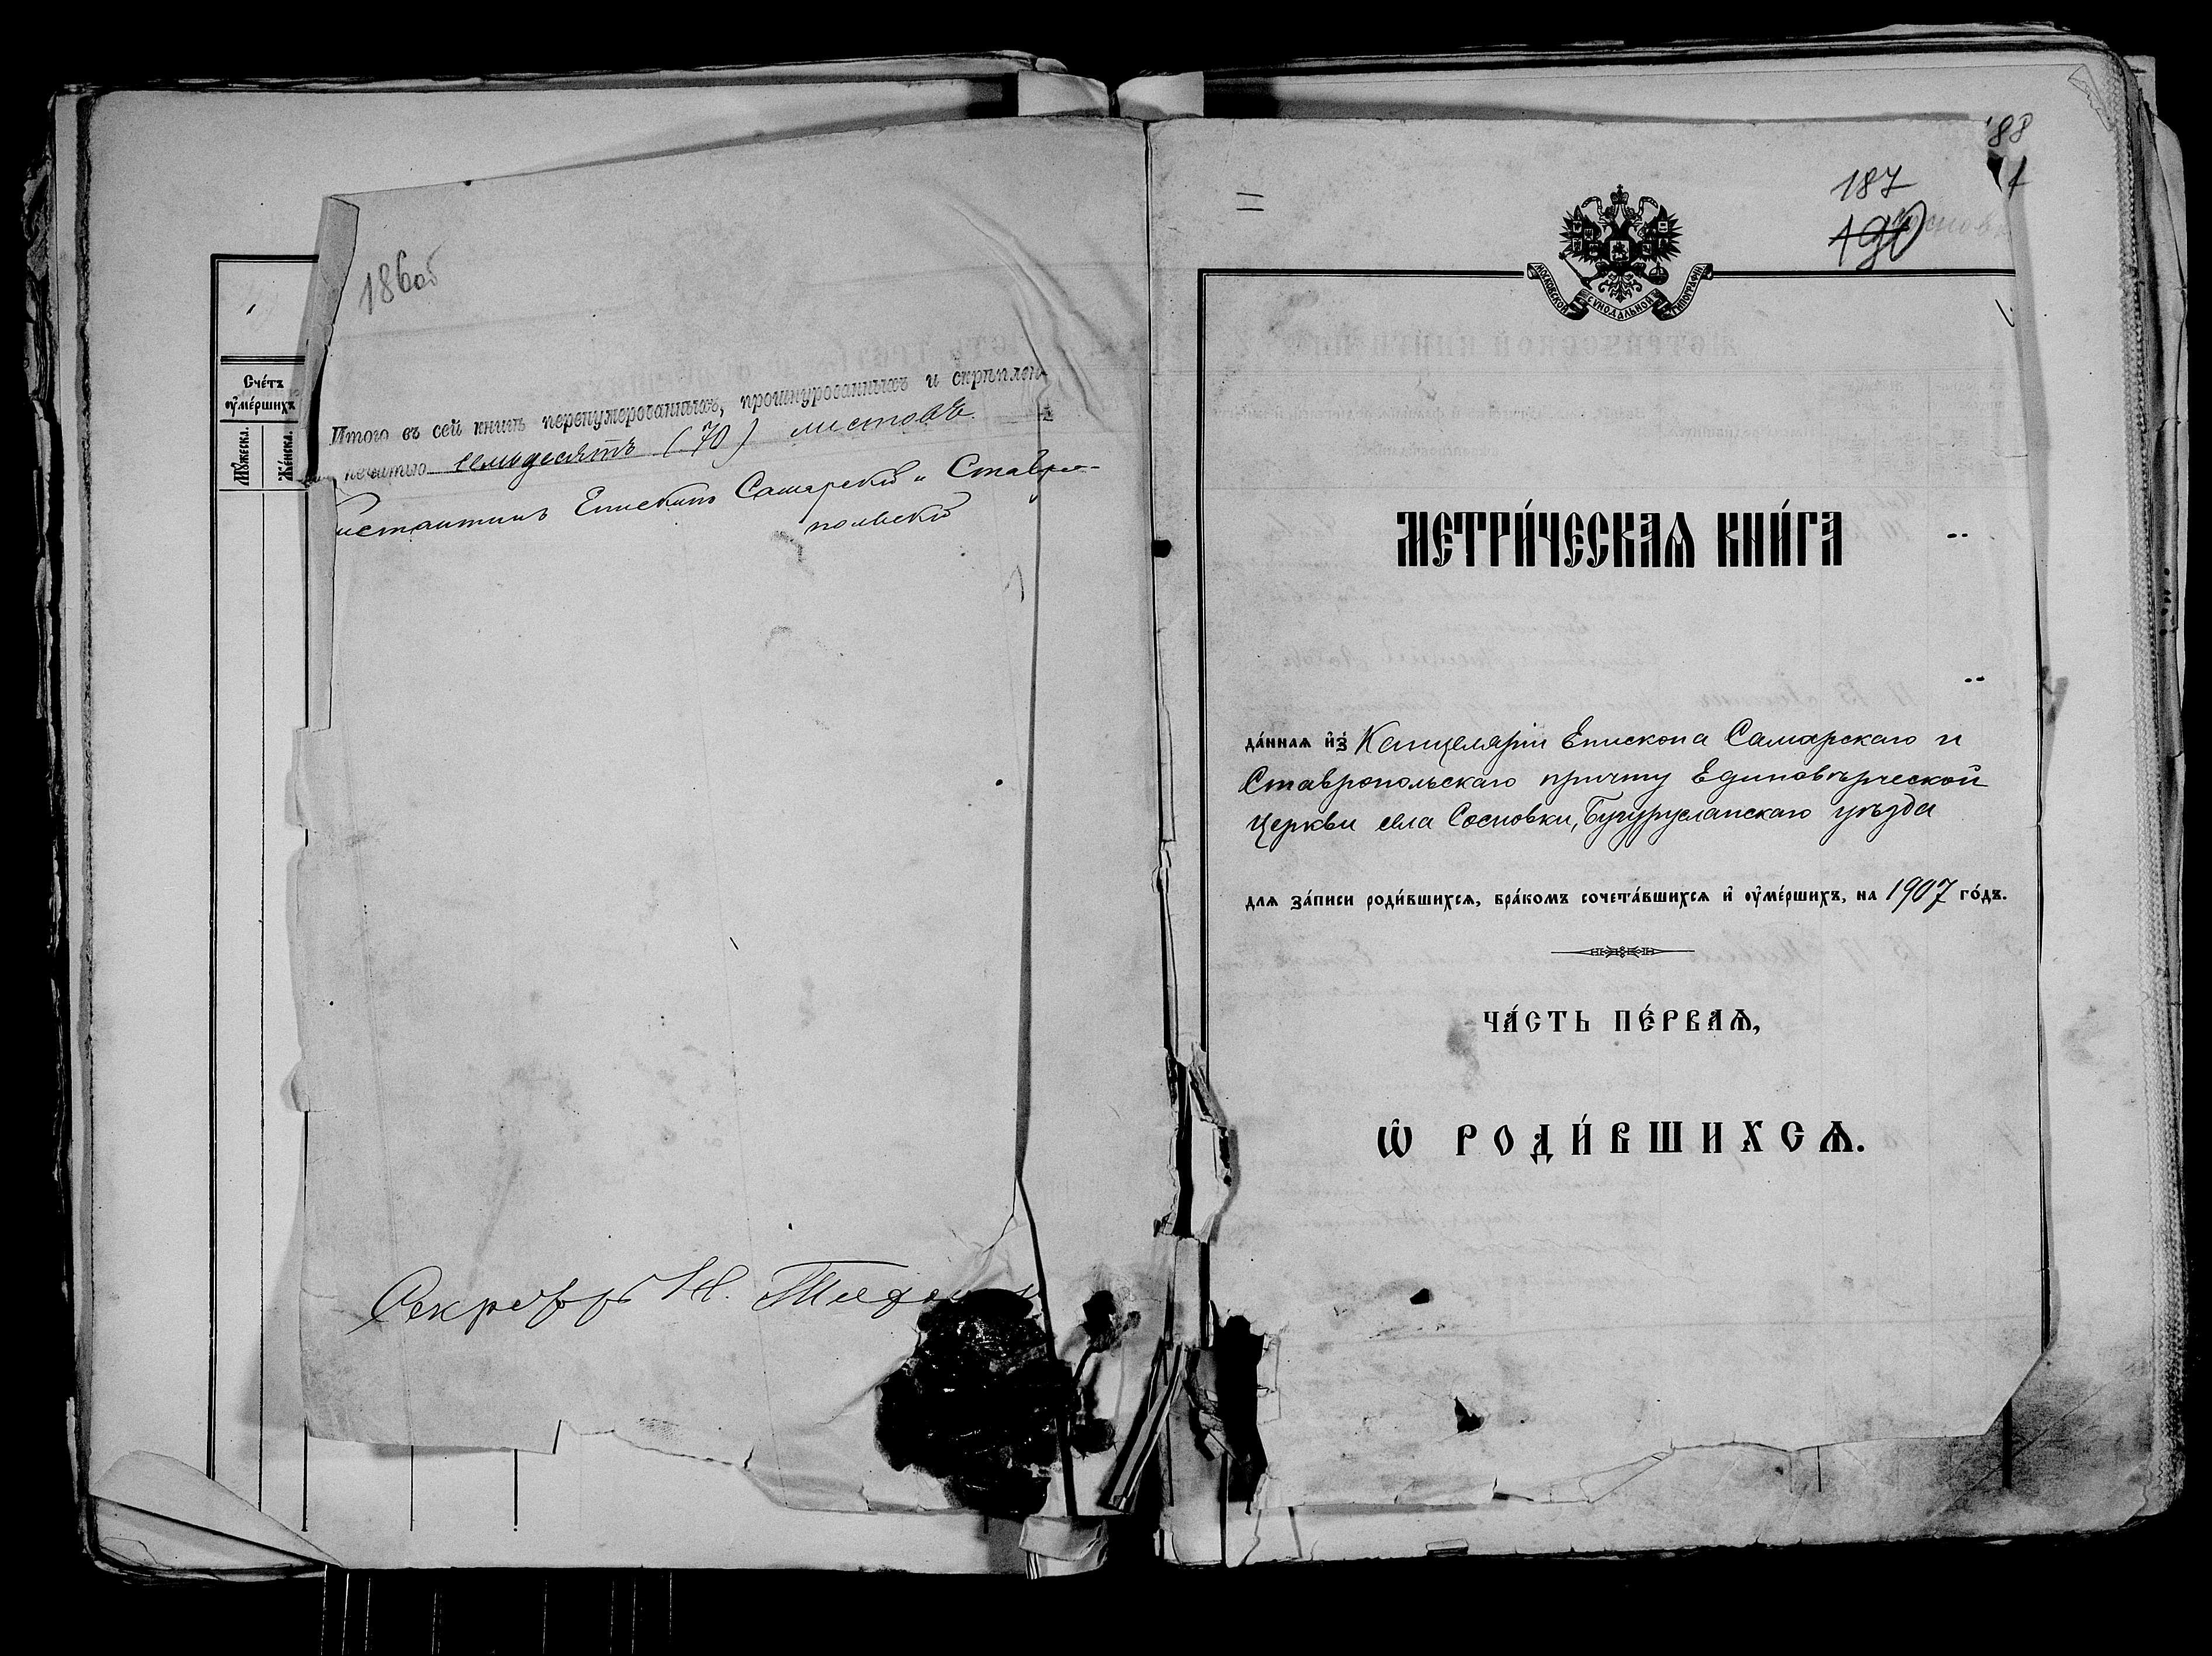 186об
Счéтъ
ᲂу҆мéршихъ
Мꙋ́жеска.
Жéнска.
Итого въ сей книгѣ перенумерованныхъ, прошнурованныхъ и скрѣплен
печатью семьдесятъ (70) листовъ
нстантинъ Епископъ Самарскій и Ставро-
польскій
Секретарь Н.
188
187
1
190
МОСКОВСКОЙ СѴНОДАЛЬНОЙ ТИПОГРАФІИ
МЕТРИ́ЧЕСКАѦ КНИ́ГА
дáннаѧ и҆з̾ Канцеляріи Епископа Самарскаго и
Ставропольскаго причту Единовѣрческой
церкви села Сосновки, Бугурусланскаго уѣзда
длѧ зáписи роди́вшихсѧ, брáкомъ сочетáвшихсѧ и҆ ᲂу҆мéршихъ, на 1907 гóдъ.
ЧÁСТЬ ПÉРВАѦ,
Ѽ РОДИ́ВШИХСѦ.